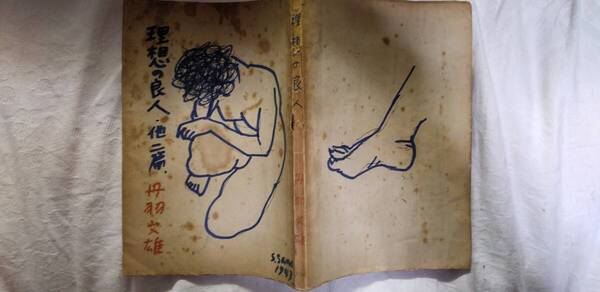 理想の良人 他二篇
丹羽文雄
理想の良人
丹羽文雄